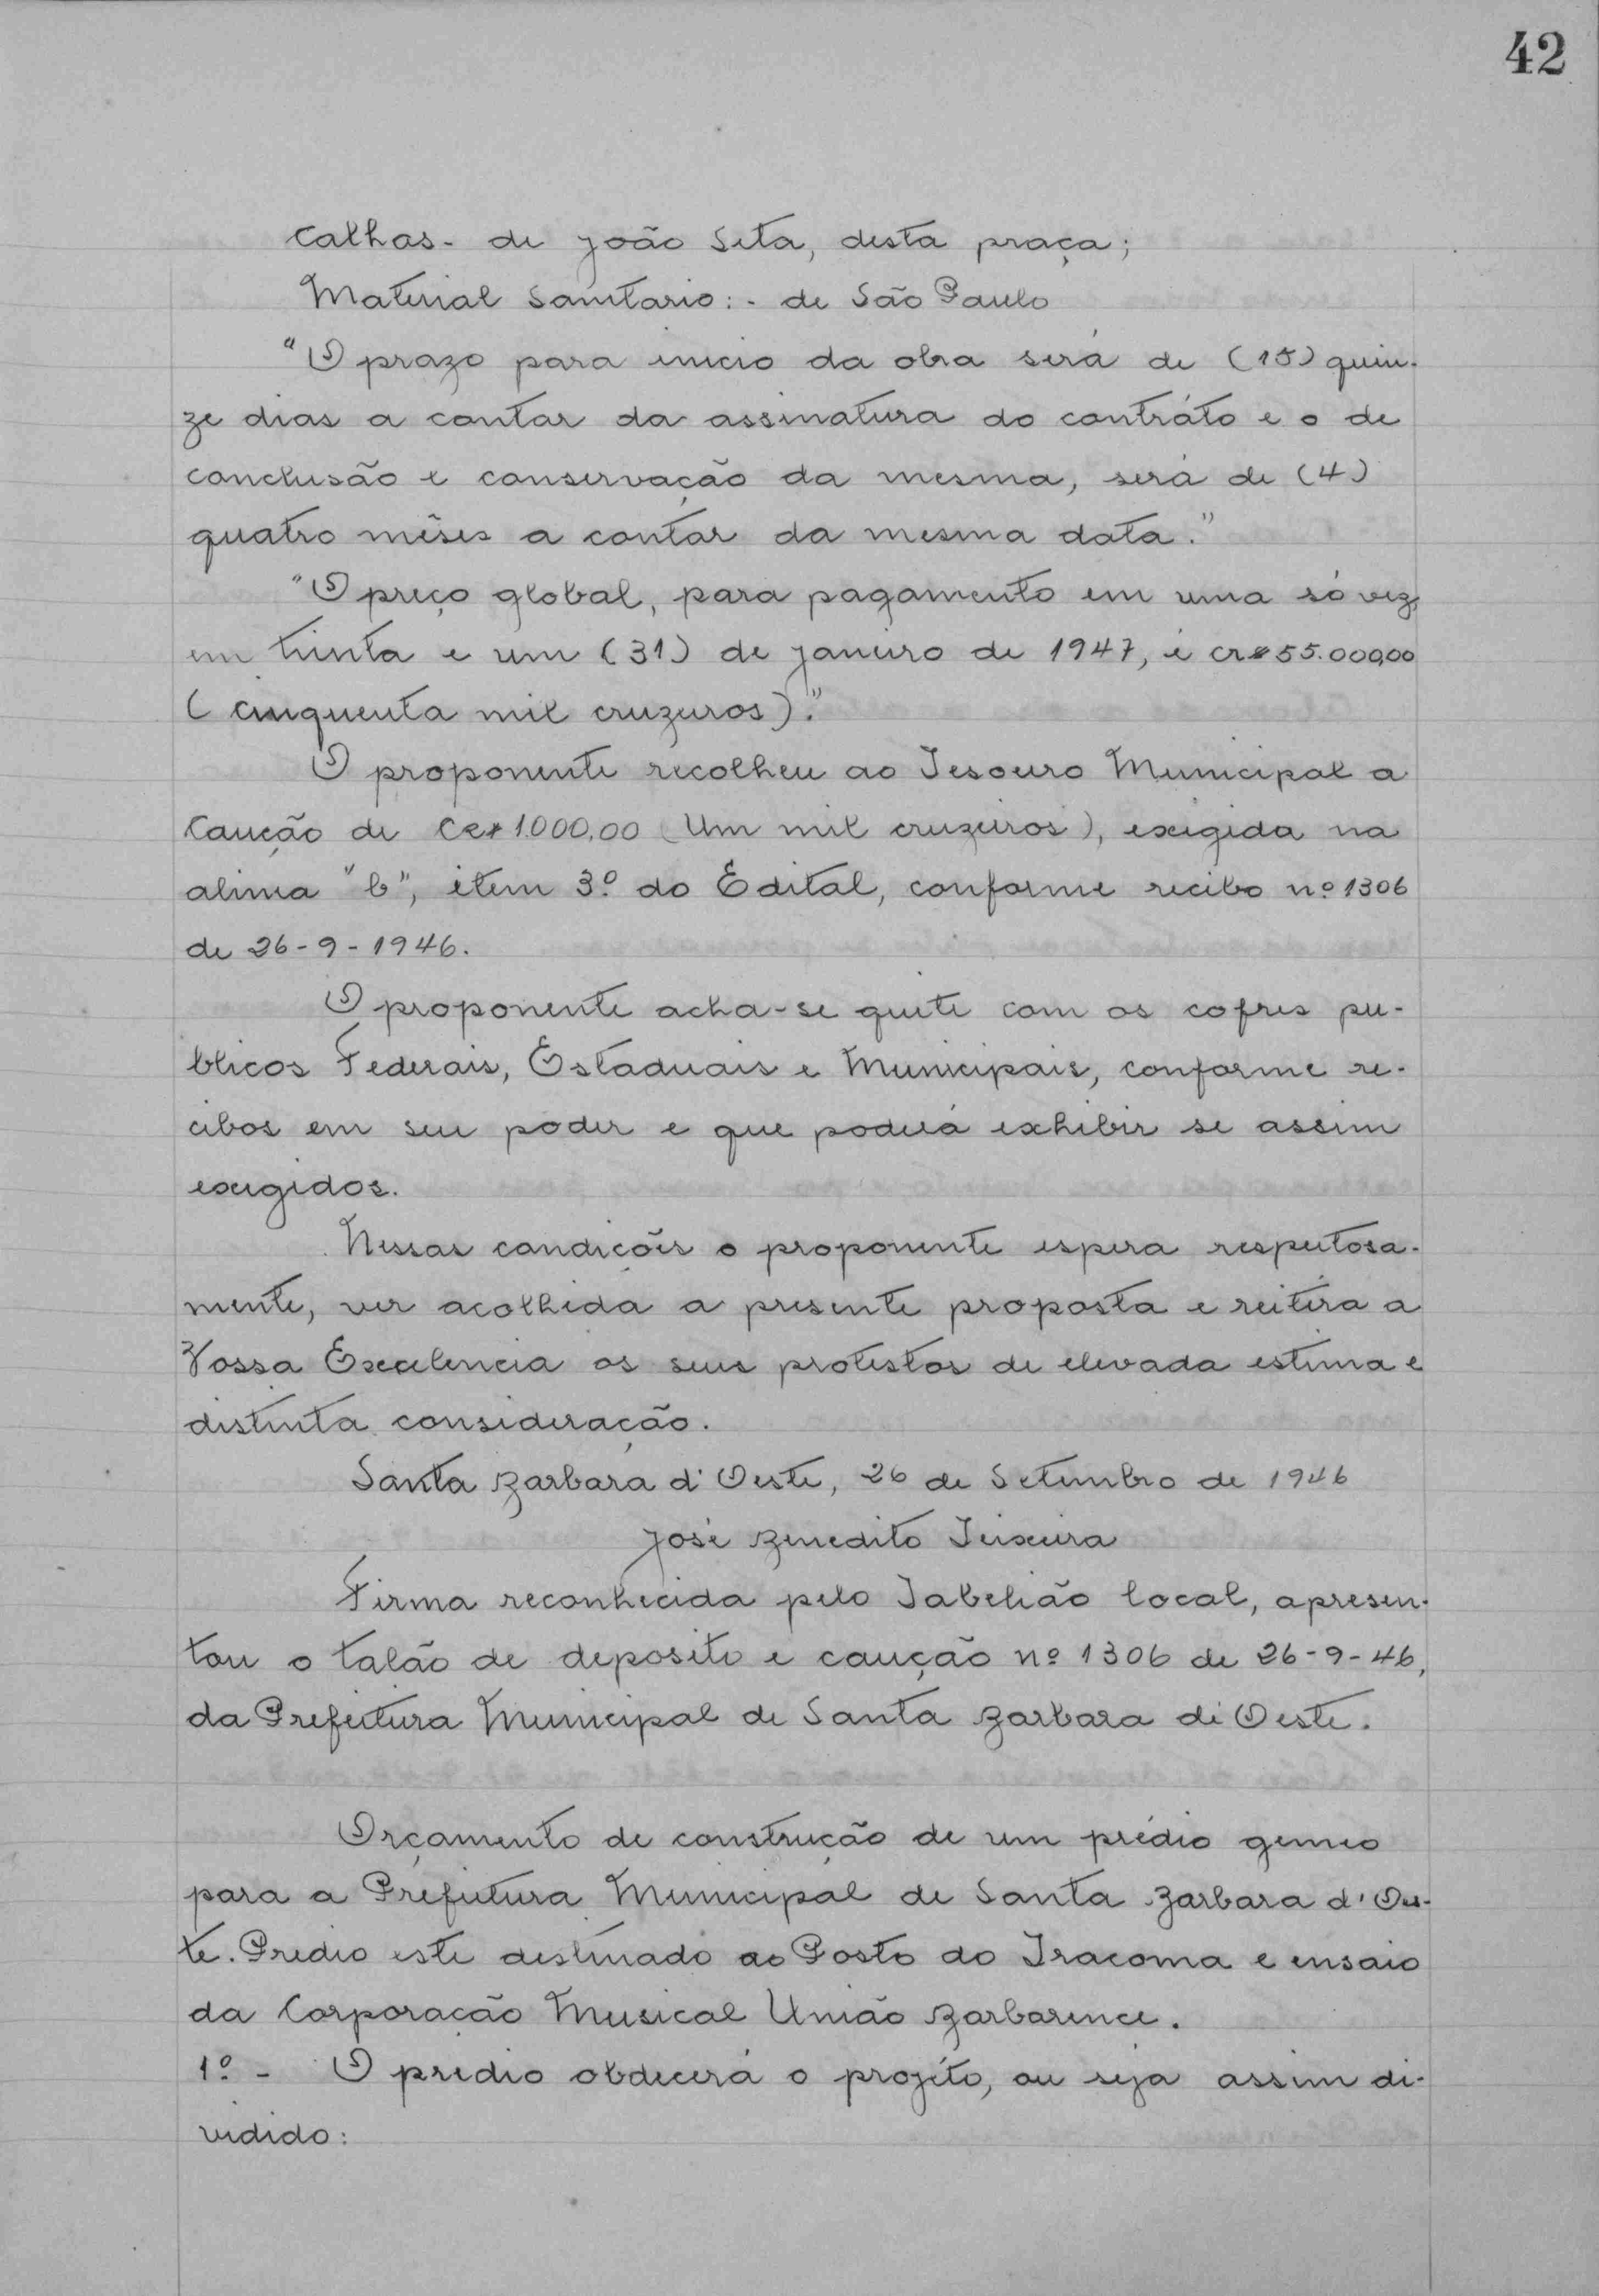 42
Calhas - de João Seta, desta praça;
Material Sanitario: - de São Paulo
"O prazo para inicio da obra será de (15) quin-
ze dias a contar da assinatura do contráto e o de
conclusão e conservação da mesma, será de (4)
quatro mêses a contar da mesma data."
"O preço global, para pagamento em uma só vez,
em trinta e um (31) de janeiro de 1947, é Cr$ 55.000,00
(cinquenta mil cruzeiros)."
O proponente recolheu ao Tesouro Municipal a
Caução de Cr$ 1.000,00 (Um mil cruzeiros), exigida na
alinea "b", item 3º do Edital, conforme recibo nº 1306
de 26-9-1946.
O proponente acha-se quite com os cofres pu-
blicos Federais, Estaduais e Municipais, conforme re-
cibos em seu poder e que poderá exhibir se assim
exigidos.
Nessas condições o proponente espera respeitosa-
mente, ver acolhida a presente proposta e reitera a
Vossa Excelencia os seus protestos de elevada estima e
distinta consideração.
Santa Barbara d'Oeste, 26 de Setembro de 1946
José Benedito Teixeira
Firma reconhecida pelo Tabelião local, apresen-
tou o talão de deposito e caução nº 1306 de 26-9-46,
da Prefeitura Municipal de Santa Barbara d'Oeste.
Orçamento de construção de um prédio gemeo
para a Prefeitura Municipal de Santa Barbara d'Oes-
te. Predio este destinado ao Posto do Tracoma e ensaio
da Corporação Musical União Barbarence.
1º - O predio obdecerá o projéto, ou seja assim di-
vidido: